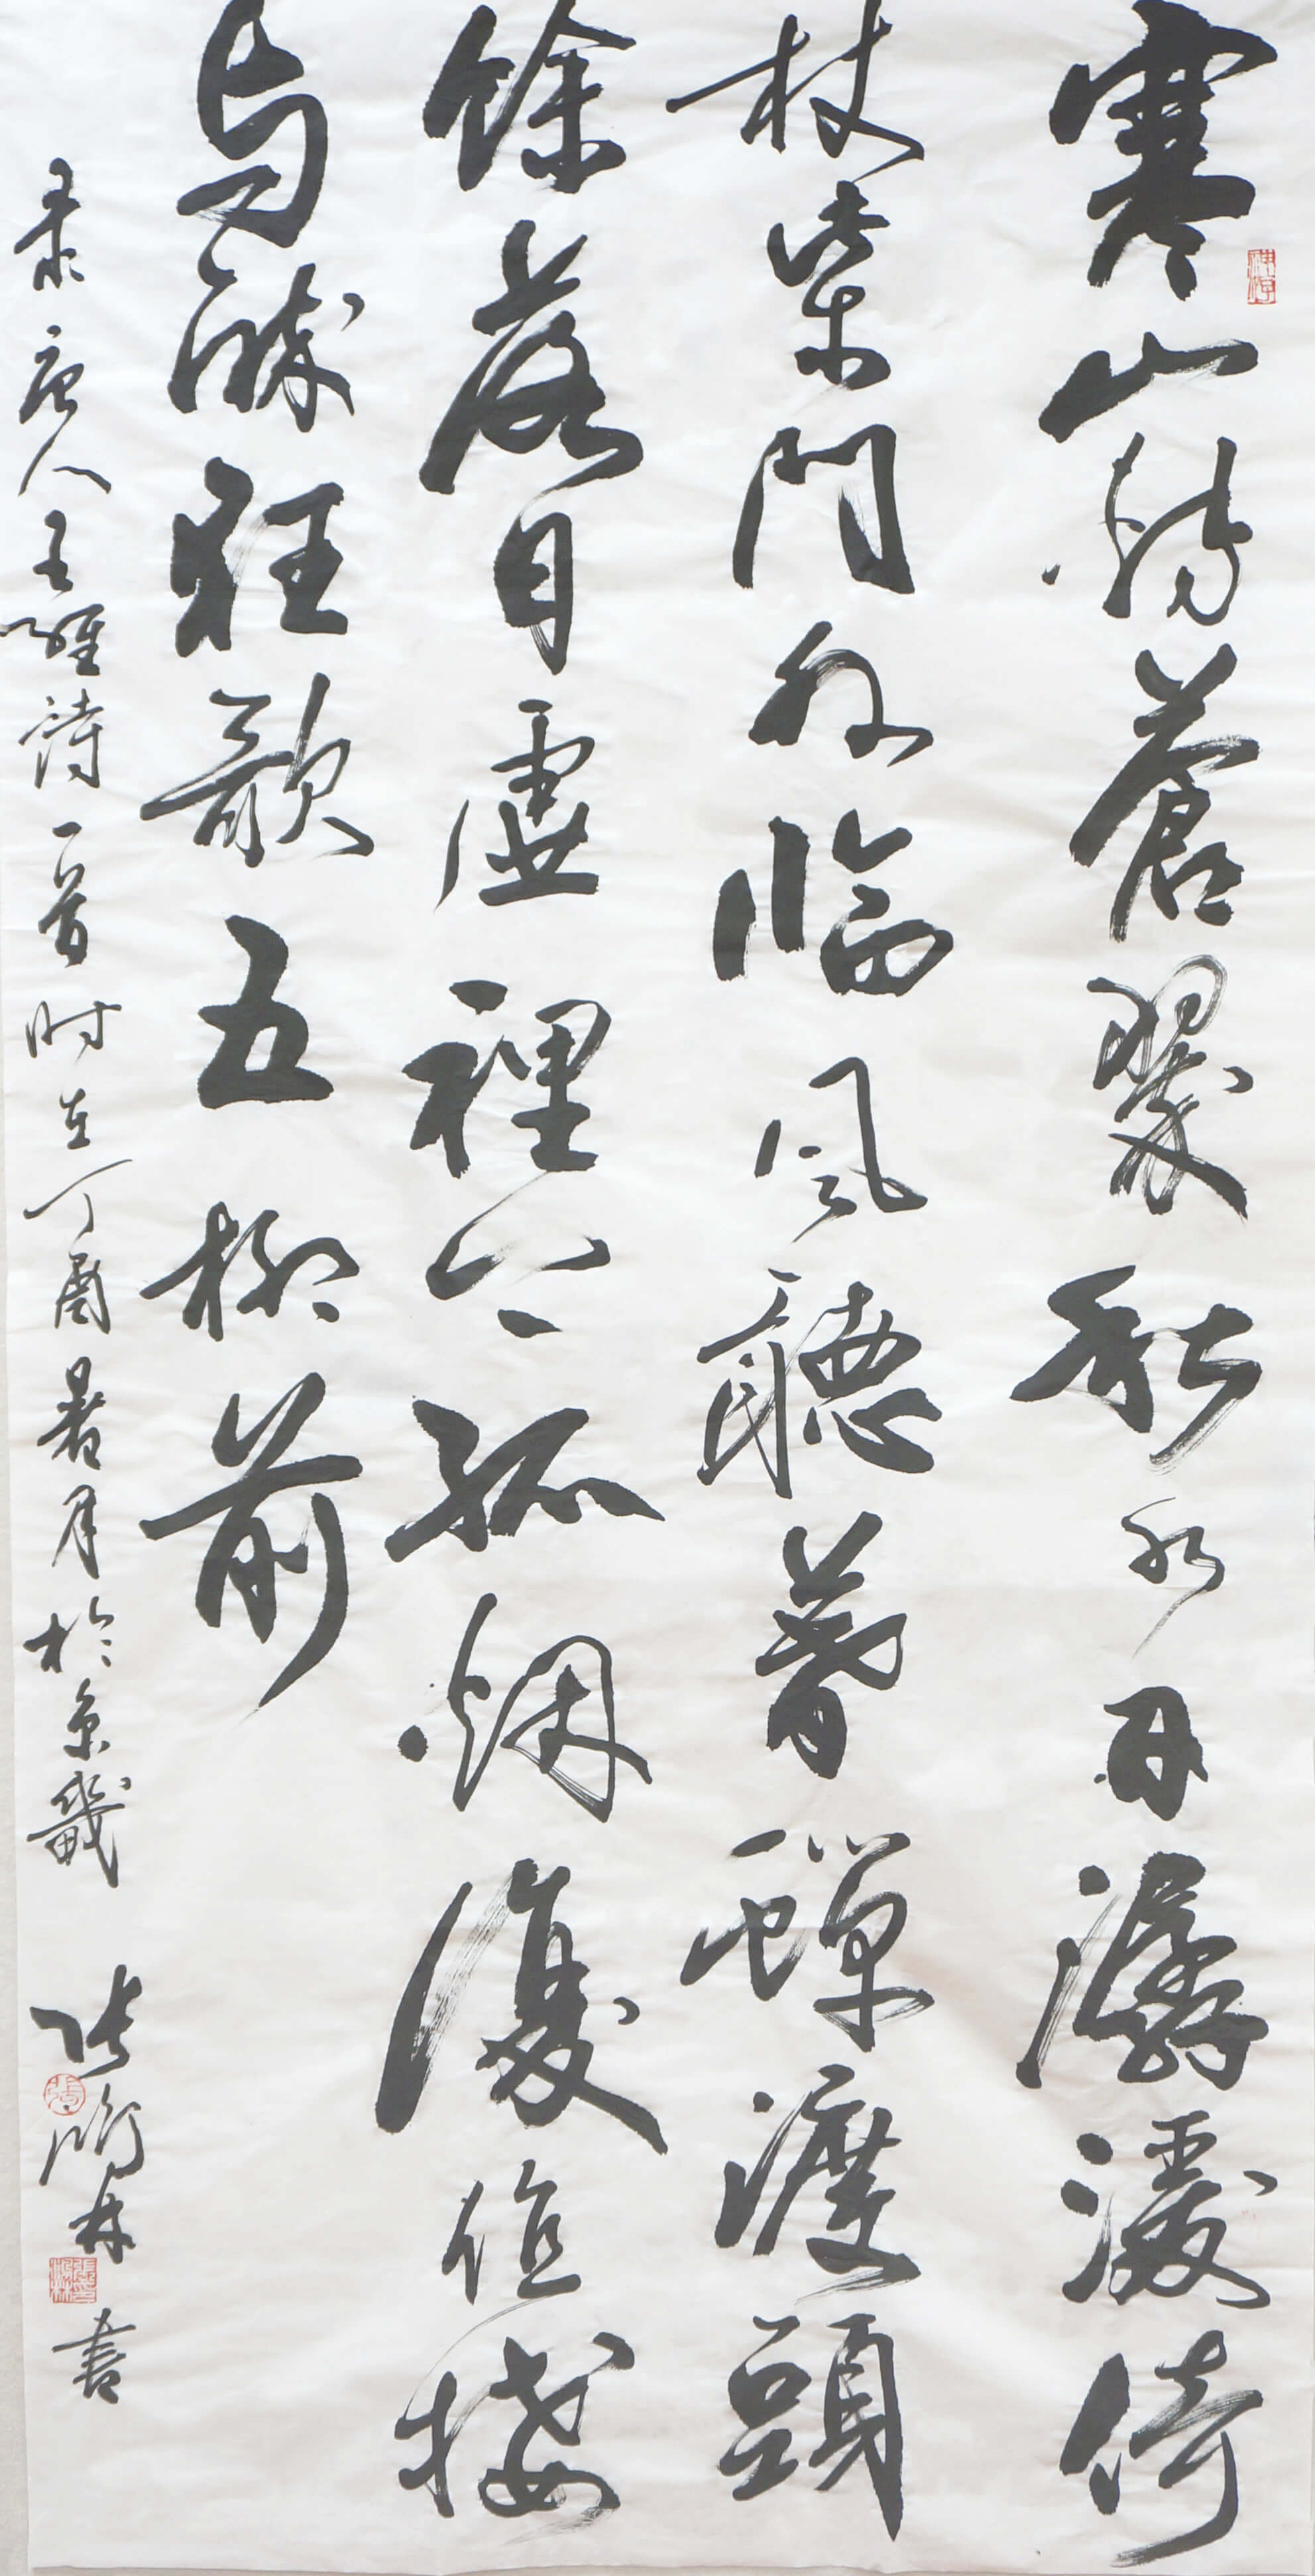 寒山轉蒼翠秋水日潺湲倚
杖柴門外臨風聽暮蟬渡頭
餘落日虛裡上孤烟復值接
与醉狂歌五柳前
录唐人王維詩一首时在丁酉暑月於京畿
張林書